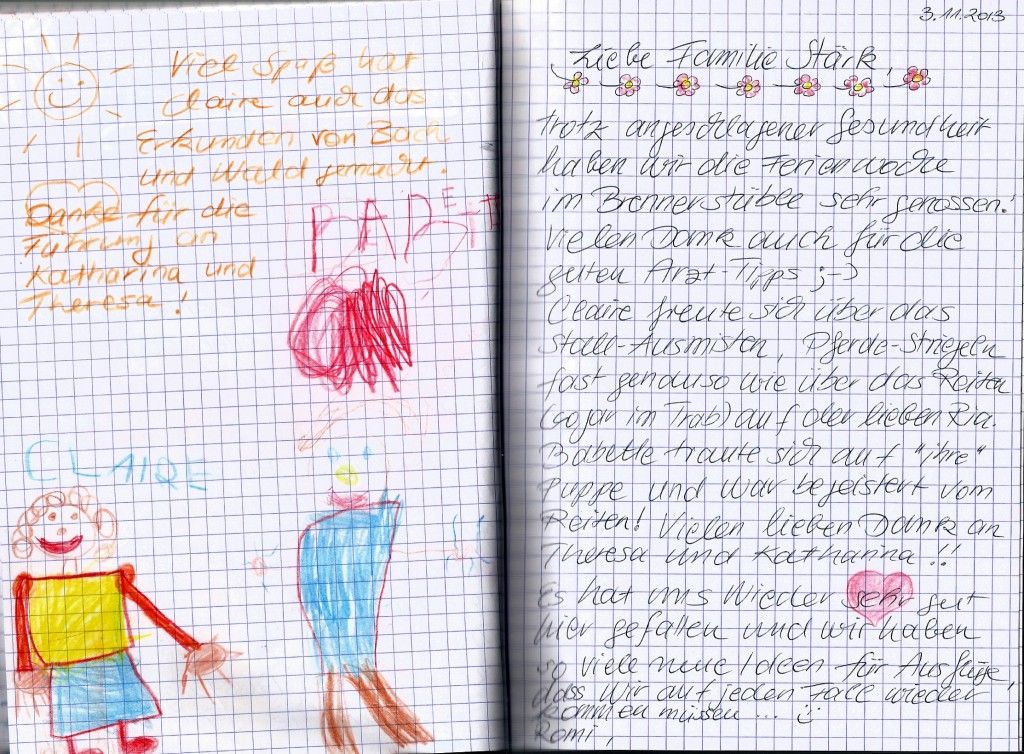 Viel Spaß hat
Claire auch das
Erkunden von Bach
und Wald gemacht.
Danke für die
Führung an
Katharina und
Theresa!
BABETT
CLAIRE
3.11.2013
Liebe Familie Stärk,
trotz angeschlagener Gesundheit
haben wir die Ferienwoche
im Brennerstüble sehr genossen!
Vielen Dank auch für die
guten Arzt-Tipps ;-)
Claire freute sich über das
Stall-Ausmisten Pferde-Striegeln
fast genauso wie über das Reiten
(sogar im Trab) auf der lieben Ria.
Babette traute sich auf "ihre"
Puppe und war begeistert vom
Reiten! Vielen lieben Dank an
Theresa und Katharina!!
Es hat uns wieder sehr gut
hier gefallen und wir haben
so viele neue Ideen für Ausflüge,
dass wir auf jeden Fall wieder
kommen müssen... ☺
Romi,